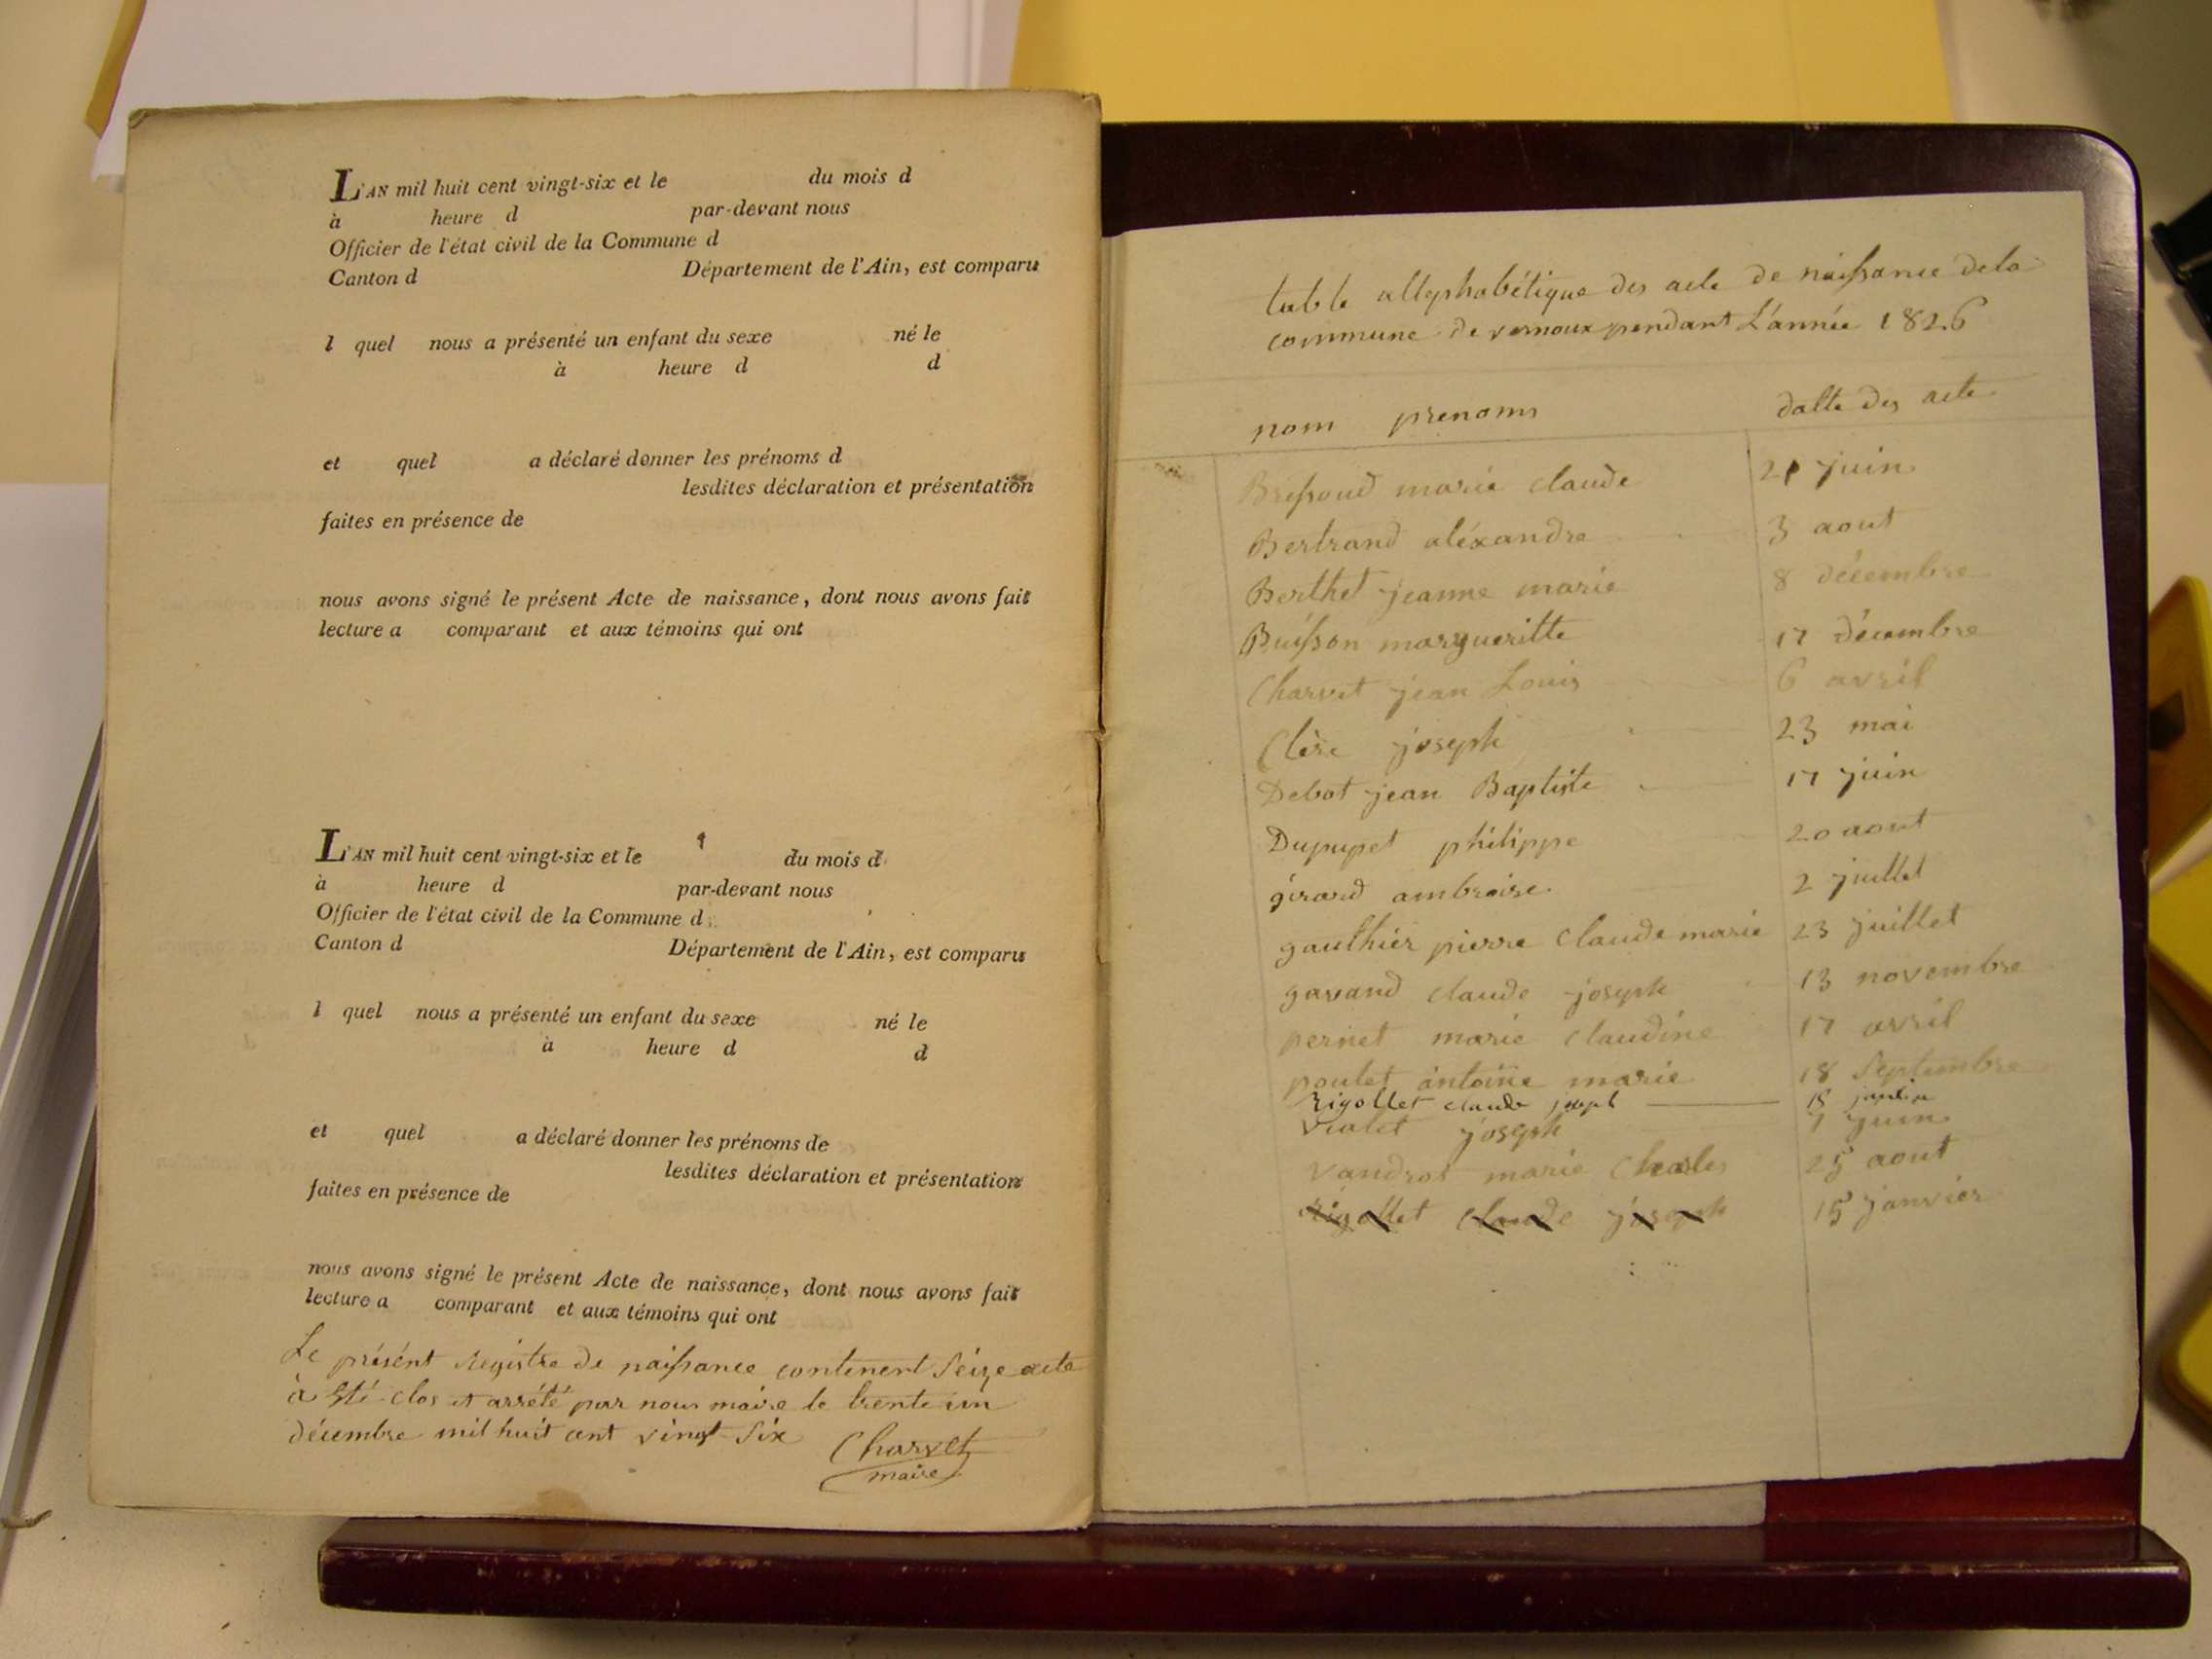 L'AN mil huit cent vingt-six et le du mois d
à heure d par-devant nous
Officier de l'état civil de la Commune d
Canton d Département de l'Ain, est comparu
l quel nous a présenté un enfant du sexe né le
à heure d d
et quel a déclaré donner les prénoms d
lesdites déclaration et présentation
faites en présence de
nous avons signé le présent Acte de naissance, dont nous avons fait
lecture a comparant et aux témoins qui ont
L'AN mil huit cent vingt-six et le du mois d
à heure d par-devant nous
Officier de l'état civil de la Commune d
Canton d Département de l'Ain, est comparu
l quel nous a présenté un enfant du sexe né le
à heure d d
et quel a déclaré donner les prénoms de
lesdites déclaration et présentation
faites en présence de
nous avons signé le présent Acte de naissance, dont nous avons fait
lecture a comparant et aux témoins qui ont
Le présént Registre de naissance contenent Seize acte
à Eté clos et arrété par nous maire le trente un
décembre mil huit cent vingt Six Charvet
maire
table allephabétique des acte de naissance dela
commune de vernoux pendant L'année 1826
nom prenoms datte des acte
Bressoud marie claude 21 juin
Bertrand aléxandre 3 aout
Berthet jeanne marie 8 décembre
Buisson margueritte 17 décembre
Charvet jean Louis 6 avril
Clère joseph 23 mai
Debot jean Baptiste 17 juin
Dupupet philippe 20 aout
girard ambroise 2 juillet
gauthier pierre claude marie 23 juillet
gavand claude joseph 13 novembre
pernet marie claudine 17 avril
poulet antoine marie 18 Septembre
Rigollet claude joseph 15 janvier
vialet joseph 7 juin
vandrot marie Charles 25 aout
Rigollet claude joseph 15 janvier